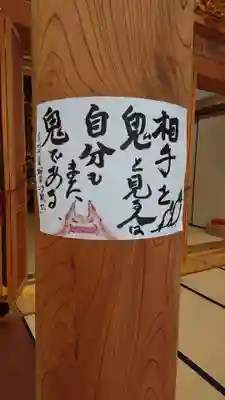 相手を
鬼と見る人は
自分も
また
鬼である